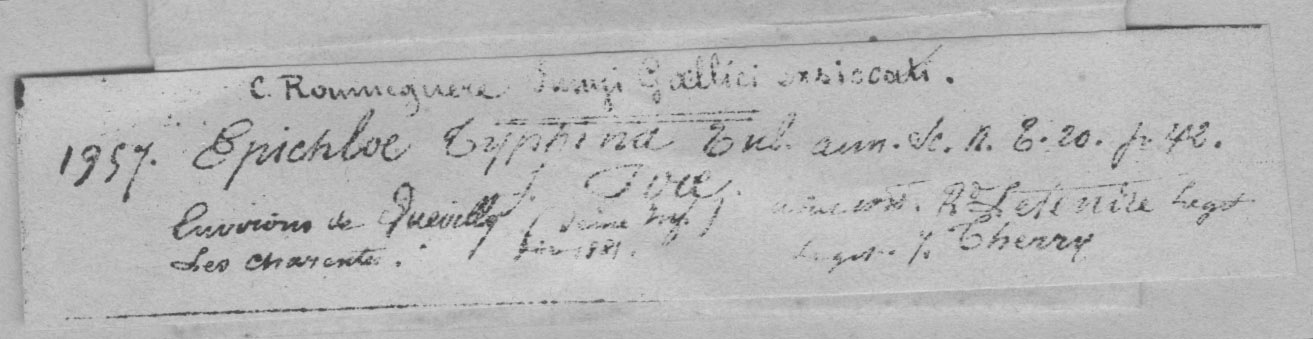 C. Roumeguere Fungi Gallici exsiccati.
1957. Epichloe Typhina Tul. ann. Sc. n. T. 20. p. 42.
f. Poae.
Environs de Quevilly (Seine Inf.) Letendre Legit
Les Charentes. 1881. Legit J. Therry